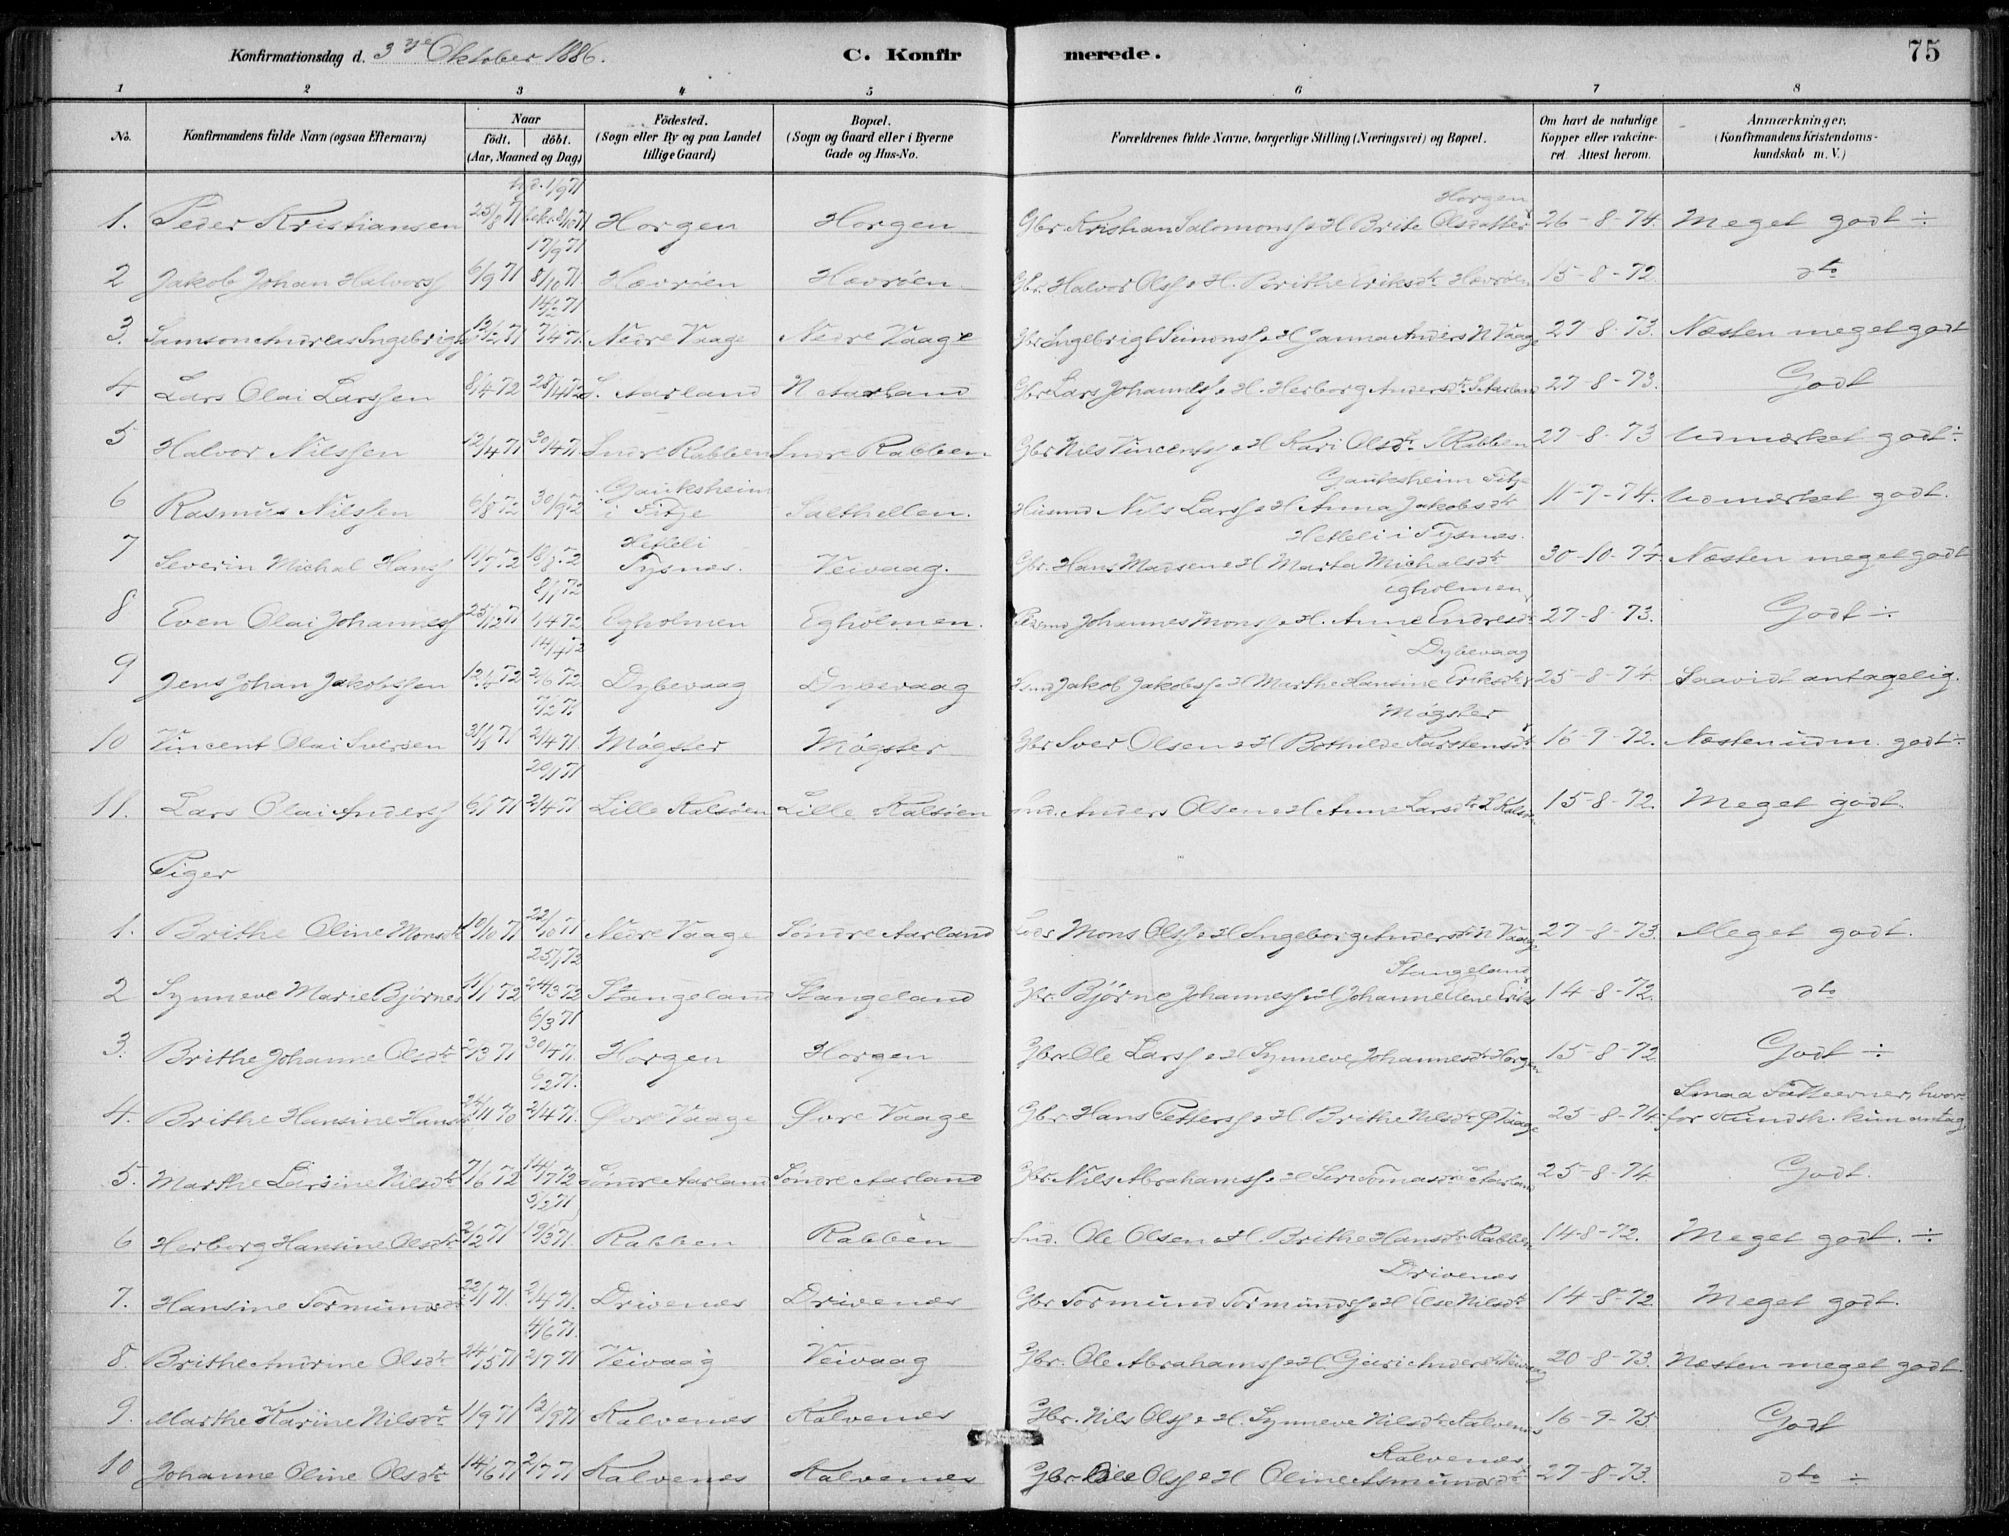 Konfirmationsdag d. 3die Oktober 1886.
C. Konfirmerede.
75
1 2 3 4 5 6 7 8
No. Konfirmandens fulde Navn (ogsaa Efternavn) Naar födt. döbt. (Aar, Maaned og Dag) Födested. (Sogn eller By og paa Landet tillige Gaard) Bopæl. (Sogn og Gaard eller i Byerne Gade og Hus-No. Forældrenes fulde Navne, borgerlige Stilling (Næringsvei) og Bopæl. Om havt de naturlige Kopper eller vakcineret. Attest herom. Anmærkninger. (Konfirmandens Kristendomskundskab m. V.)
1. Peder Kristiansen 25/8 71 hjd. 1/9 71 bekr. 8/10 71 Horgen Horgen Gbr. Kristian Salomons. o H Brite Olsdatter Horgen 26-8-74. Meget godt ÷
2 Jakob Johan Halvors. 6/9 71 17/9 71 8/10 71. Hævröen Hævröen. Gbr. Halvor Ols. o H. Brithe Eriksdtr Hævröen 15-8-72. dto
3. Simson Andreas Ingebrigts. 12/2 71 14/2 71 7/4 71. Nedre Vaage Nedre Vaage Gbr. Ingebrigt Simons. o H Janna Anders N Vaage 27-8-73. Næsten meget godt
4 Lars Olai Larssen 8/4 72 28/4 72 S. Aarland N Aarland Gbr Lars Johannes. o H. Herborg Andersdtr S. Aarland 27-8-73. Godt
5 Halvor Nilssen 12/4 71 30/4 71. Sndre Rabben Sndre Rabben Gbr Nils Vincents. o H Kari Olsdtr S Rabben 27-8-73 Udmærket godt ÷
6 Rasmus Nilssen 6/8 72 30/9 72 Gauksheim i Fitje Salthellen. Husmd Nils Lars. o H Anna Jakobsdtr Gauksheim Fitje 11-7-74. Udmærket godt.
7 Severin Michal Hans. 72 72 Hetleli Tysnes. Veivaag. Gbr. Hans Madsen o H Marta Michalsdtr Hetleli i Tysnes. 30-10-74. Næsten meget godt
8 Even Olai Johannes. 25/12 71 2/1 72 1/4 72 Egholmen Egholmen. Johannes Mons. o H. Anne Endresdtr Egholmen 27-8-73. Godt ÷
9 Jens Johan Jakobssen 12/4 72 14/4 72 2/6 72 Dybevaag Dybevaag Jakob Jakobs. o H Marthe Hansine Eriksdtr Dybevaag 25-8-74. Saavidt antagelig.
10 Vincent Olai Sversen 31/1 71 7/2 71 2/4 71. Mögster Mögster Gbr Sver Olsen o H Bothilde Karstensdtr Mögster 16-9-72. Næsten udm. godt ÷
11. Lars Olai Anders. 6/1 71 20/1 71 2/4 71 Lille Kalsöen Lille Kalsöen Anders Olsen o H Anne Larsdtr L Kalsöen 15-8-72. Meget godt.
Piger
1. Brithe Oline Monsdtr 10/10 71 22/10 71 Nedre Vaage Söndre Aarland Mons Ols. o H Ingeborg Andersdtr N Vaage 27-8-73. Meget godt.
2 Synneve Marie Björnes 11/1 72 25/1 72 24/3 72 Stangeland Stangeland Gbr. Björne Johannes. o H Johanne Lene Eriks Stangeland 14-8-72. dto
3. Brithe Johanne Olsdtr 2/3 71 6/3 71 30/4 71. Horgen Horgen Gbr. Ole Lars. o H Synneve Johannesdtr Horgen 15-8-72 Godt ÷
4. Brithe Hansine Hansdtr 24/11 70 6/2 71. 2/4 71. Övre Vaage Övre Vaage Gbr. Hans Petters. o H Brithe Nilsdtr Ö Vaage 25-8-74. Smaa Fatteevner, hvorfor Kundsk. kun antag.
5. Marthe Larsine Nilsdtr 7/6 72 14/7 72 Söndre Aarland Söndre Aarland Gbr. Nils Abrahams. o H Siri Tomasdtr S Aarland 25-8-74 Godt.
6 Herborg Hansine Olsdtr 2/2 71 9/2 71 19/3 71. Rabben Rabben Ind. Ole Olsen o H. Brithe Hansdtr Rabben 14-8-72. Meget godt. ÷
7. Hansine Tormundsdtr 22/1 71. 2/4 71. Drivenes Drivenes Gbr Tormund Tormunds. o H Else Nilsdtr Drivenes 14-8-72. Meget godt.
8. Brithe Andrine Olsdtr 24/5 71 4/6 71. 2/7 71 Veivaag Veivaag Gbr. Ole Abrahams. o H. Guri Andersdtr Veivaag 20-8-73. Næsten meget godt.
9. Marthe Karine Nilsdtr 1/9 71 12/9 71 Kalvenes Kalvenes Gbr. Nils Ols. o H. Synneve Nilsdtr Kalvenes 16-9-75 Godt
10 Johanne Oline Olsdtr 14/6 71 2/7 71 Kalvenes Kalvenes Gbr. Ole Ols. o H Oline Asmundsdtr Kalvenes 27-8-73. dto ÷